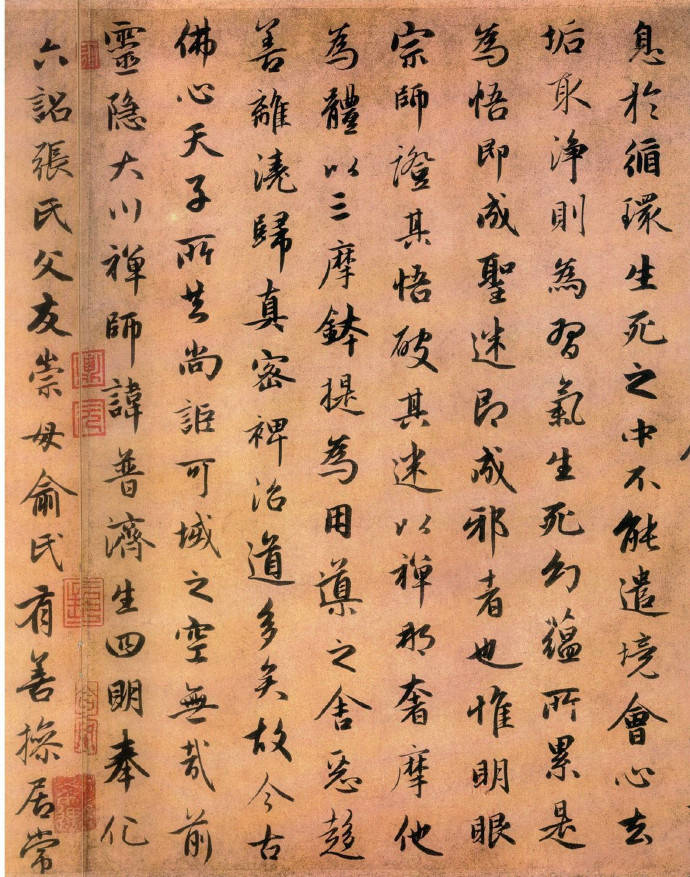 息於循環生死之中不能遣境會心去
垢取淨則為習氣生死幻蘊所累是
為悟即成聖迷即成邪者也惟明眼
宗師證其悟破其迷以禪那奢摩他
為體以三摩鉢提為用導之舍惡趍
善離澆歸真密裨治道多矣故今古
佛心天子所共尚詎可域之空無哉前
靈隐大川禅師諱普濟生四明奉化
六詔張氏父友崇母俞氏有善操居常